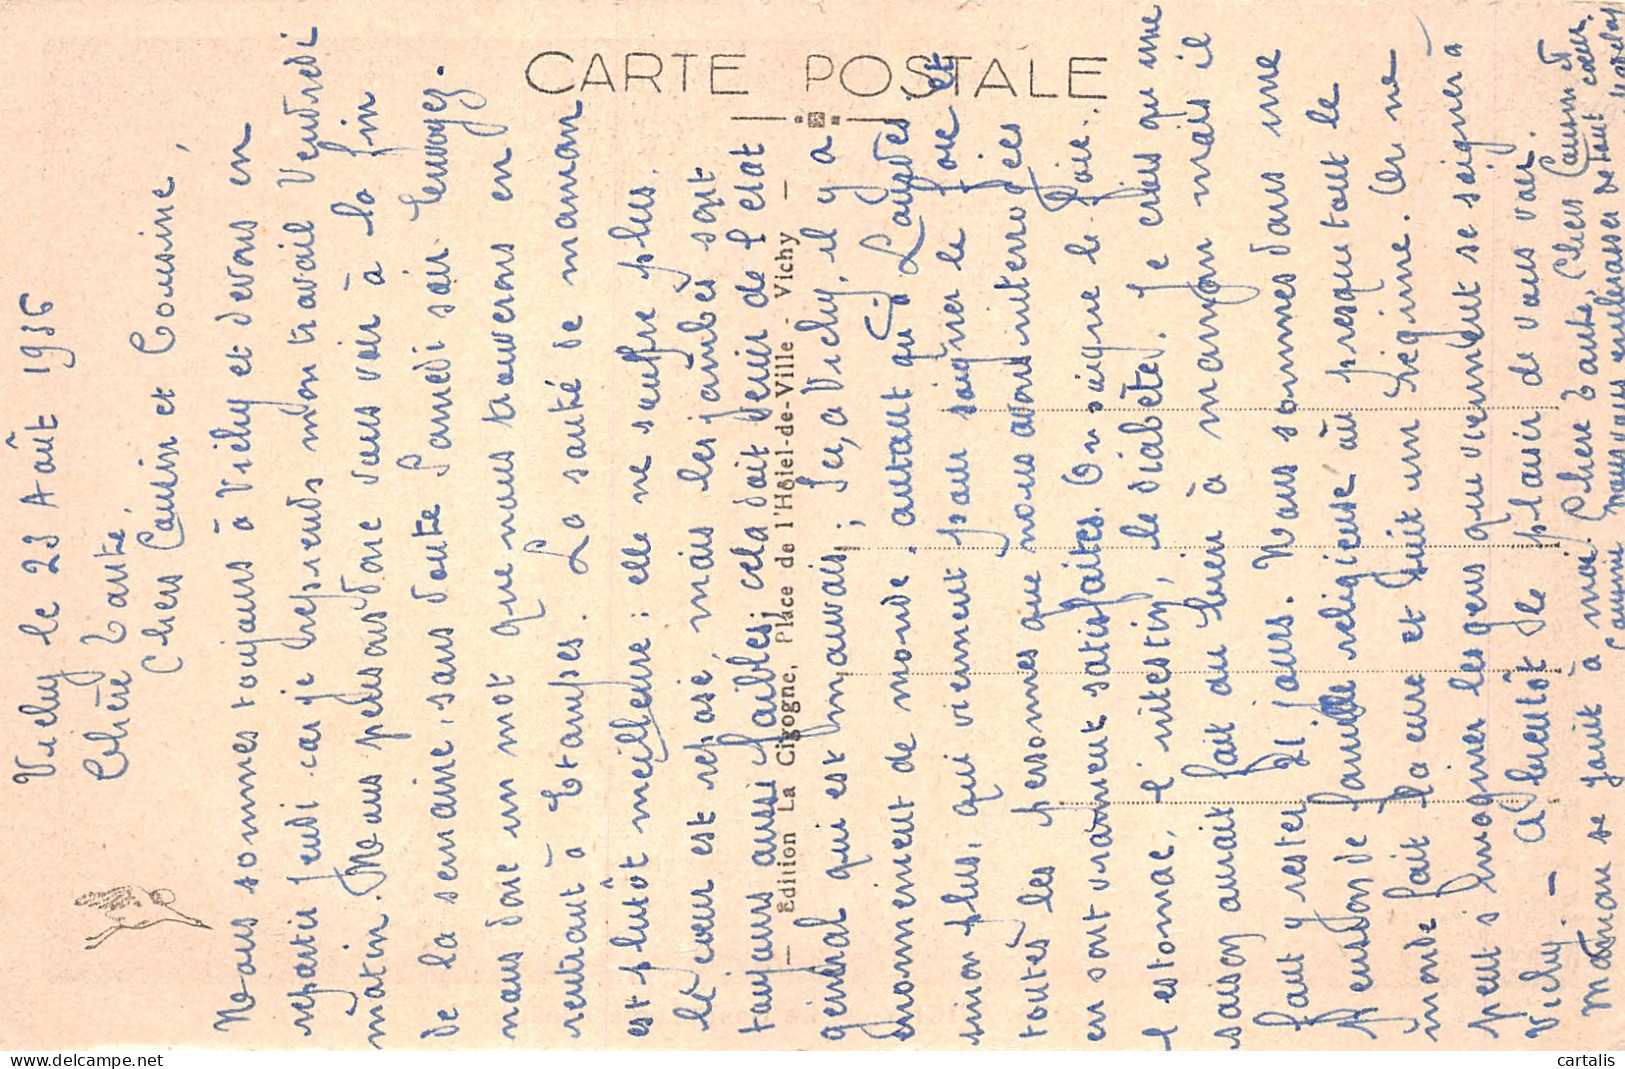 CARTE POSTALE
— Edition La Cigogne, Place de l'Hôtel-de-Ville - Vichy —
Vichy le 23 Août 1936
Chère Tante,
Chers Cousin et Cousine,
Nous sommes toujours à Vichy et devons en
repartir Jeudi car je reprends mon travail Vendredi
matin. Nous pensons donc vous voir à la fin
de la semaine, sans doute Samedi soir. Envoyez
nous donc un mot que nous trouverons en
rentrant à Etampes. La santé de maman
est plutôt meilleure ; elle ne souffre plus.
le cœur est reposé, mais les jambes sont
toujours aussi faibles; cela doit venir de l'état
général qui est mauvais ; Ici, à Vichy, il y a
énormément de monde, autant qu'à Lourdes
sinon plus, qui viennent pour soigner le foie et
toutes les personnes que nous avons interrogées
en sont vraiment satisfaites. On soigne le foie,
l'estomac, l'intestin, le diabète. Je crois qu'une
saison aurait fait du bien à mais il
faut y rester 21 jours. Nous sommes dans une
pension de famille religieuse où presque tout le
monde fait la cure et suit un régime. On ne
peut s'imaginer les gens qui viennent se soigner à
Vichy — A bientôt le plaisir de vous voir.
Maman se joint à moi, Chère Tante, Chers Cousin et
Cousine pour vous embrasser de tout cœur.
cartalis